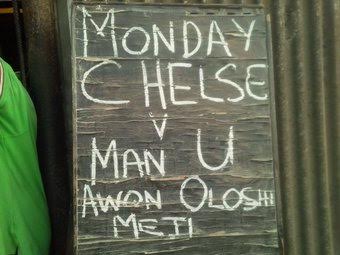 MONDAY
CHELSE
V
MAN U
AWON OLOSHI
MEJI